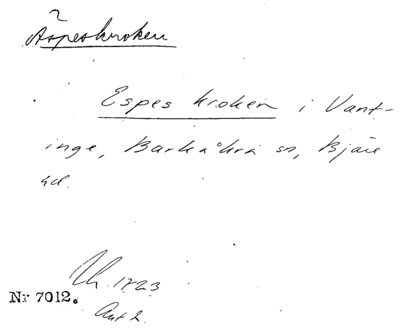 ?
Äspeskroken
Espes kroken i Vant-
inge, Barkåkra sn, Bjäre
hd.
Lh. 1723
Nr 7012.
Ant 2.